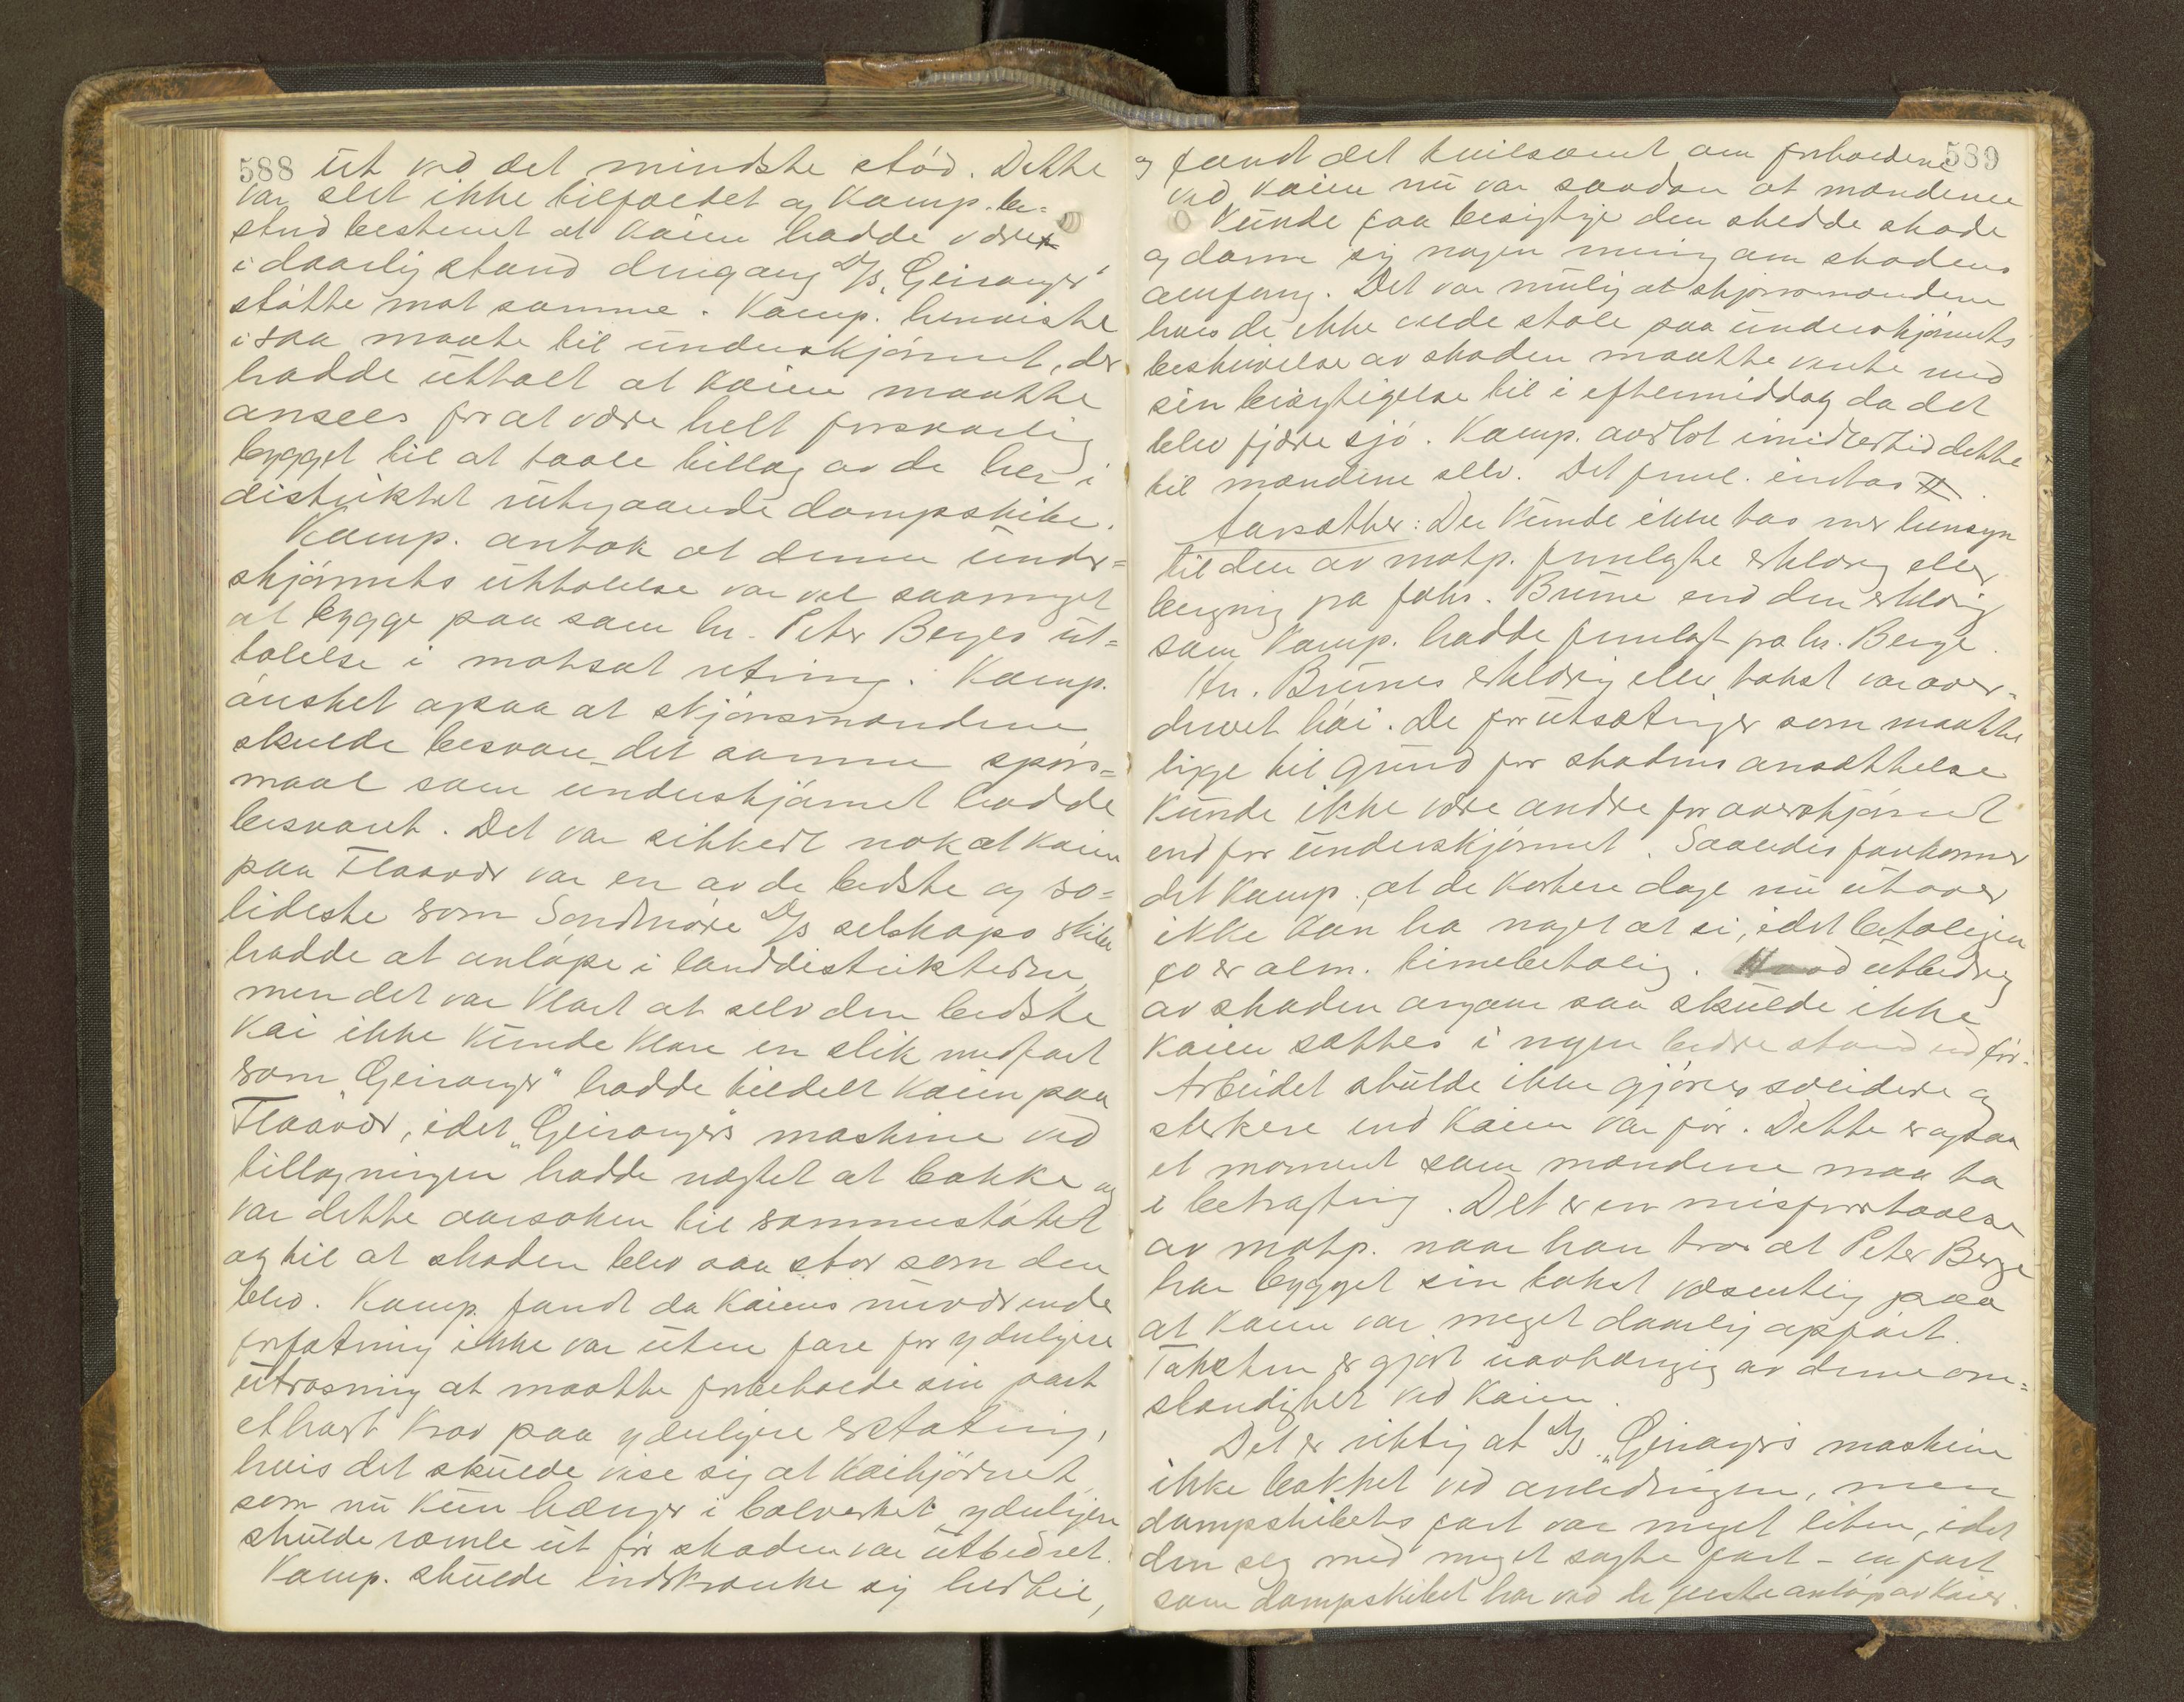 588 ut ved det mindste stöd. Dette
var slet ikke tilfældet og Komp. be=
stred bestemt at Kaien hadde været
i daarlig stand dengang D/S „Geiranger"
støtte mot samme. Komp. henviste
i saa maate til underskjønnet, der
hadde uttalt at Kaien maatte
ansees for at være helt forsvarlig
bygget til at taale tillæg av de her i
distriktet rutegaaende dampskibe.
Komp. antok at denne under=
skjønnets uttalelse var vel saameget
at bygge paa som hr. Peter Berges ut=
talelse i motsat retning. Komp.
ønsket ogsaa at skjønsmændene
skulde besvare det samme spørs=
maal som underskjønnet hadde
besvaret. Det var sikkert nok at Kaien
paa Flaavær var en av de bedste og so=
lideste som Søndmøre D/S selskaps skibe
hadde at anløpe i landdistrikterne,
men det var klart at selv den bedste
Kai ikke kunde klare en slik medfart
som „Geiranger" hadde tildelt Kaien paa
Flaavær, idet „Geiranger"s maskine ved
tillægningen hadde nægtet at bakke og
var dette aarsaken til sammenstøtet
og til at skaden blev saa stor som den
blev. Komp. fandt da Kaiens nuværende
forfatning ikke var uten fare for yderligere
utrasning at maatte forbeholde sin part
ethvert krav paa yderligere erstatning,
hvis det skulde vise sig at Kaihjørnet
som nu kun hænger i bolverket yderligere
skulde ramle ut før skaden var utbedret.
Komp. skulde indskrænke sig hertil,
589
og fandt det tvilsomt om forholdene
ved Kaien nu var saadan at mændene
kunde faa besigtige den skedde skade
og danne sig nogen mening om skadens
omfang. Det var mulig at skjønsmændene
hvis de ikke vilde stole paa underskjønnets
beskrivelse av skaden maatte vente med
sin besigtigelse til i eftermiddag da det
blev fjære sjø. Komp. overlot imidlertid dette
til mændene selv. Det freml. indtas
Aarsæther: Der kunde ikke tas mer hensyn
til den av motp. fremlagte erklæring eller
beregning fra Johs. Brune end den erklæring
som Komp. hadde fremlagt fra hr. Berge.
Hr. Brunes erklæring eller takst var over-
drevet høi. De forutsætninger som maatte
ligge til grund for skadens ansættelse
kunde ikke være andre for overskjønnet
end for underskjønnet. Saaledes forekommer
det Komp. at de kortere dage nu utover
ikke kan ha noget at si, idet betalingen
jo er alm. timebetaling. Hvad utbedring
av skaden angaar saa skulde ikke
Kaien sættes i nogen bedre stand end før.
Arbeidet skulde ikke gjøres solidere og
sterkere end Kaien var før. Dette er ogsaa
et moment som mændene maa ta
i betragtning. Det er en misforstaaelse
av motp. naar han tror at Peter Berge
har bygget sin takst væsentlig paa
at Kaien var meget daarlig opført.
Taksten er gjort uavhængig av denne om=
stændighet ved Kaien.
Det er riktig at D/S „Geiranger"s maskine
ikke bakket ved anledningen, men
dampskibets fart var meget liten, idet
den seg med meget sagte fart - en fart
som dampskibet har ved de fleste anløp av Kaier.